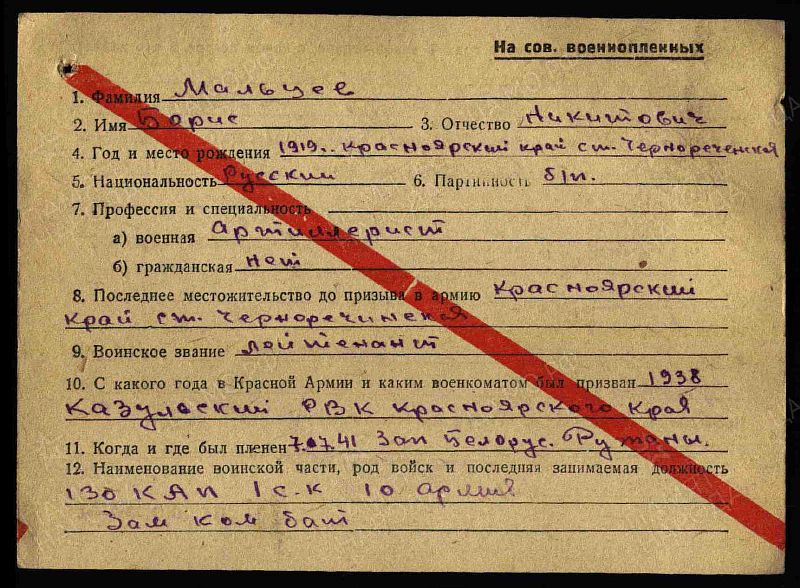 На сов. военнопленных
1. Фамилия Мальцев
2. Имя Борис 3. Отчество Никитович
4. Год и место рождения 1919г. Красноярский край ст. Чернореченская
5. Национальность Русский 6. Партийность б/п.
7. Профессия и специальность
а) военная Артиллерист
б) гражданская нет
8. Последнее местожительство до призыва в армию Красноярский
край ст. Черноречинская
9. Воинское звание лейтенант
10. С какого года в Красной Армии и каким военкоматом был призван 1938
Казульский РВК Красноярского Края
11. Когда и где был пленен 7.07.41 Зап Белорус. Ружаны.
12. Наименование воинской части, род войск и последняя занимаемая должность
130 КАП 1 с.к 10 армия
Зам ком бат